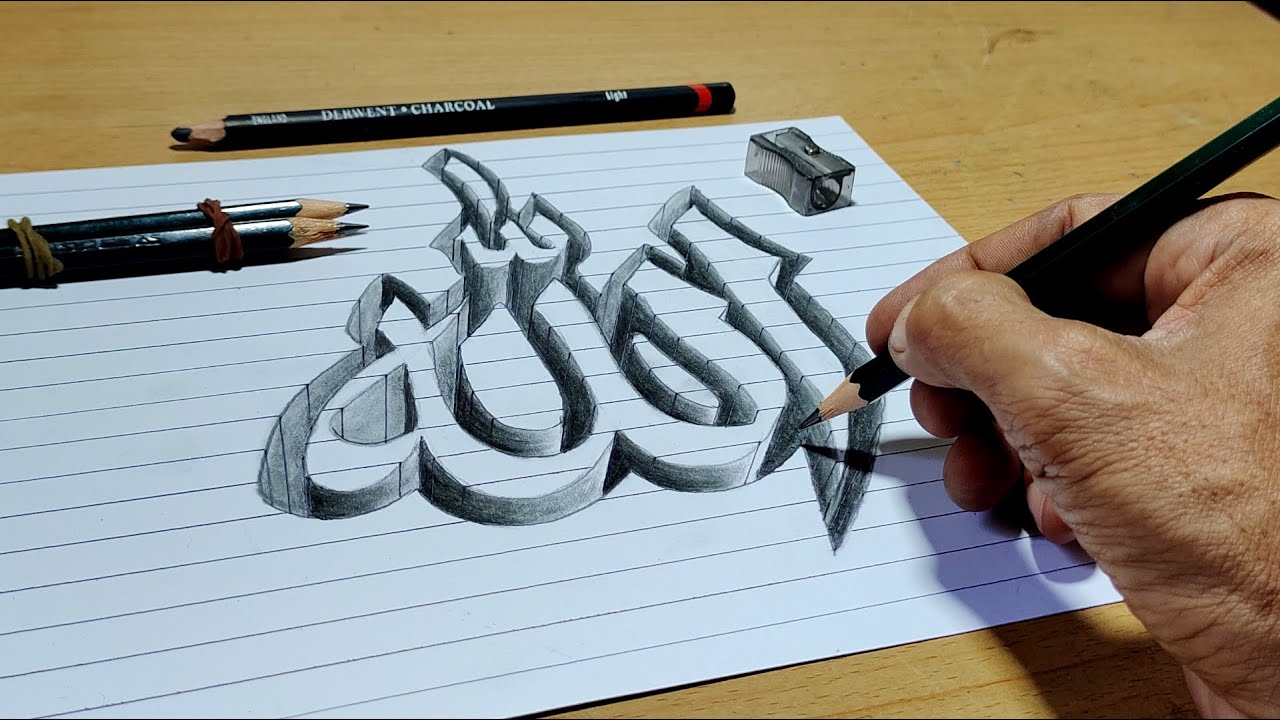 ENGLAND DERWENT • CHARCOAL Light
الله